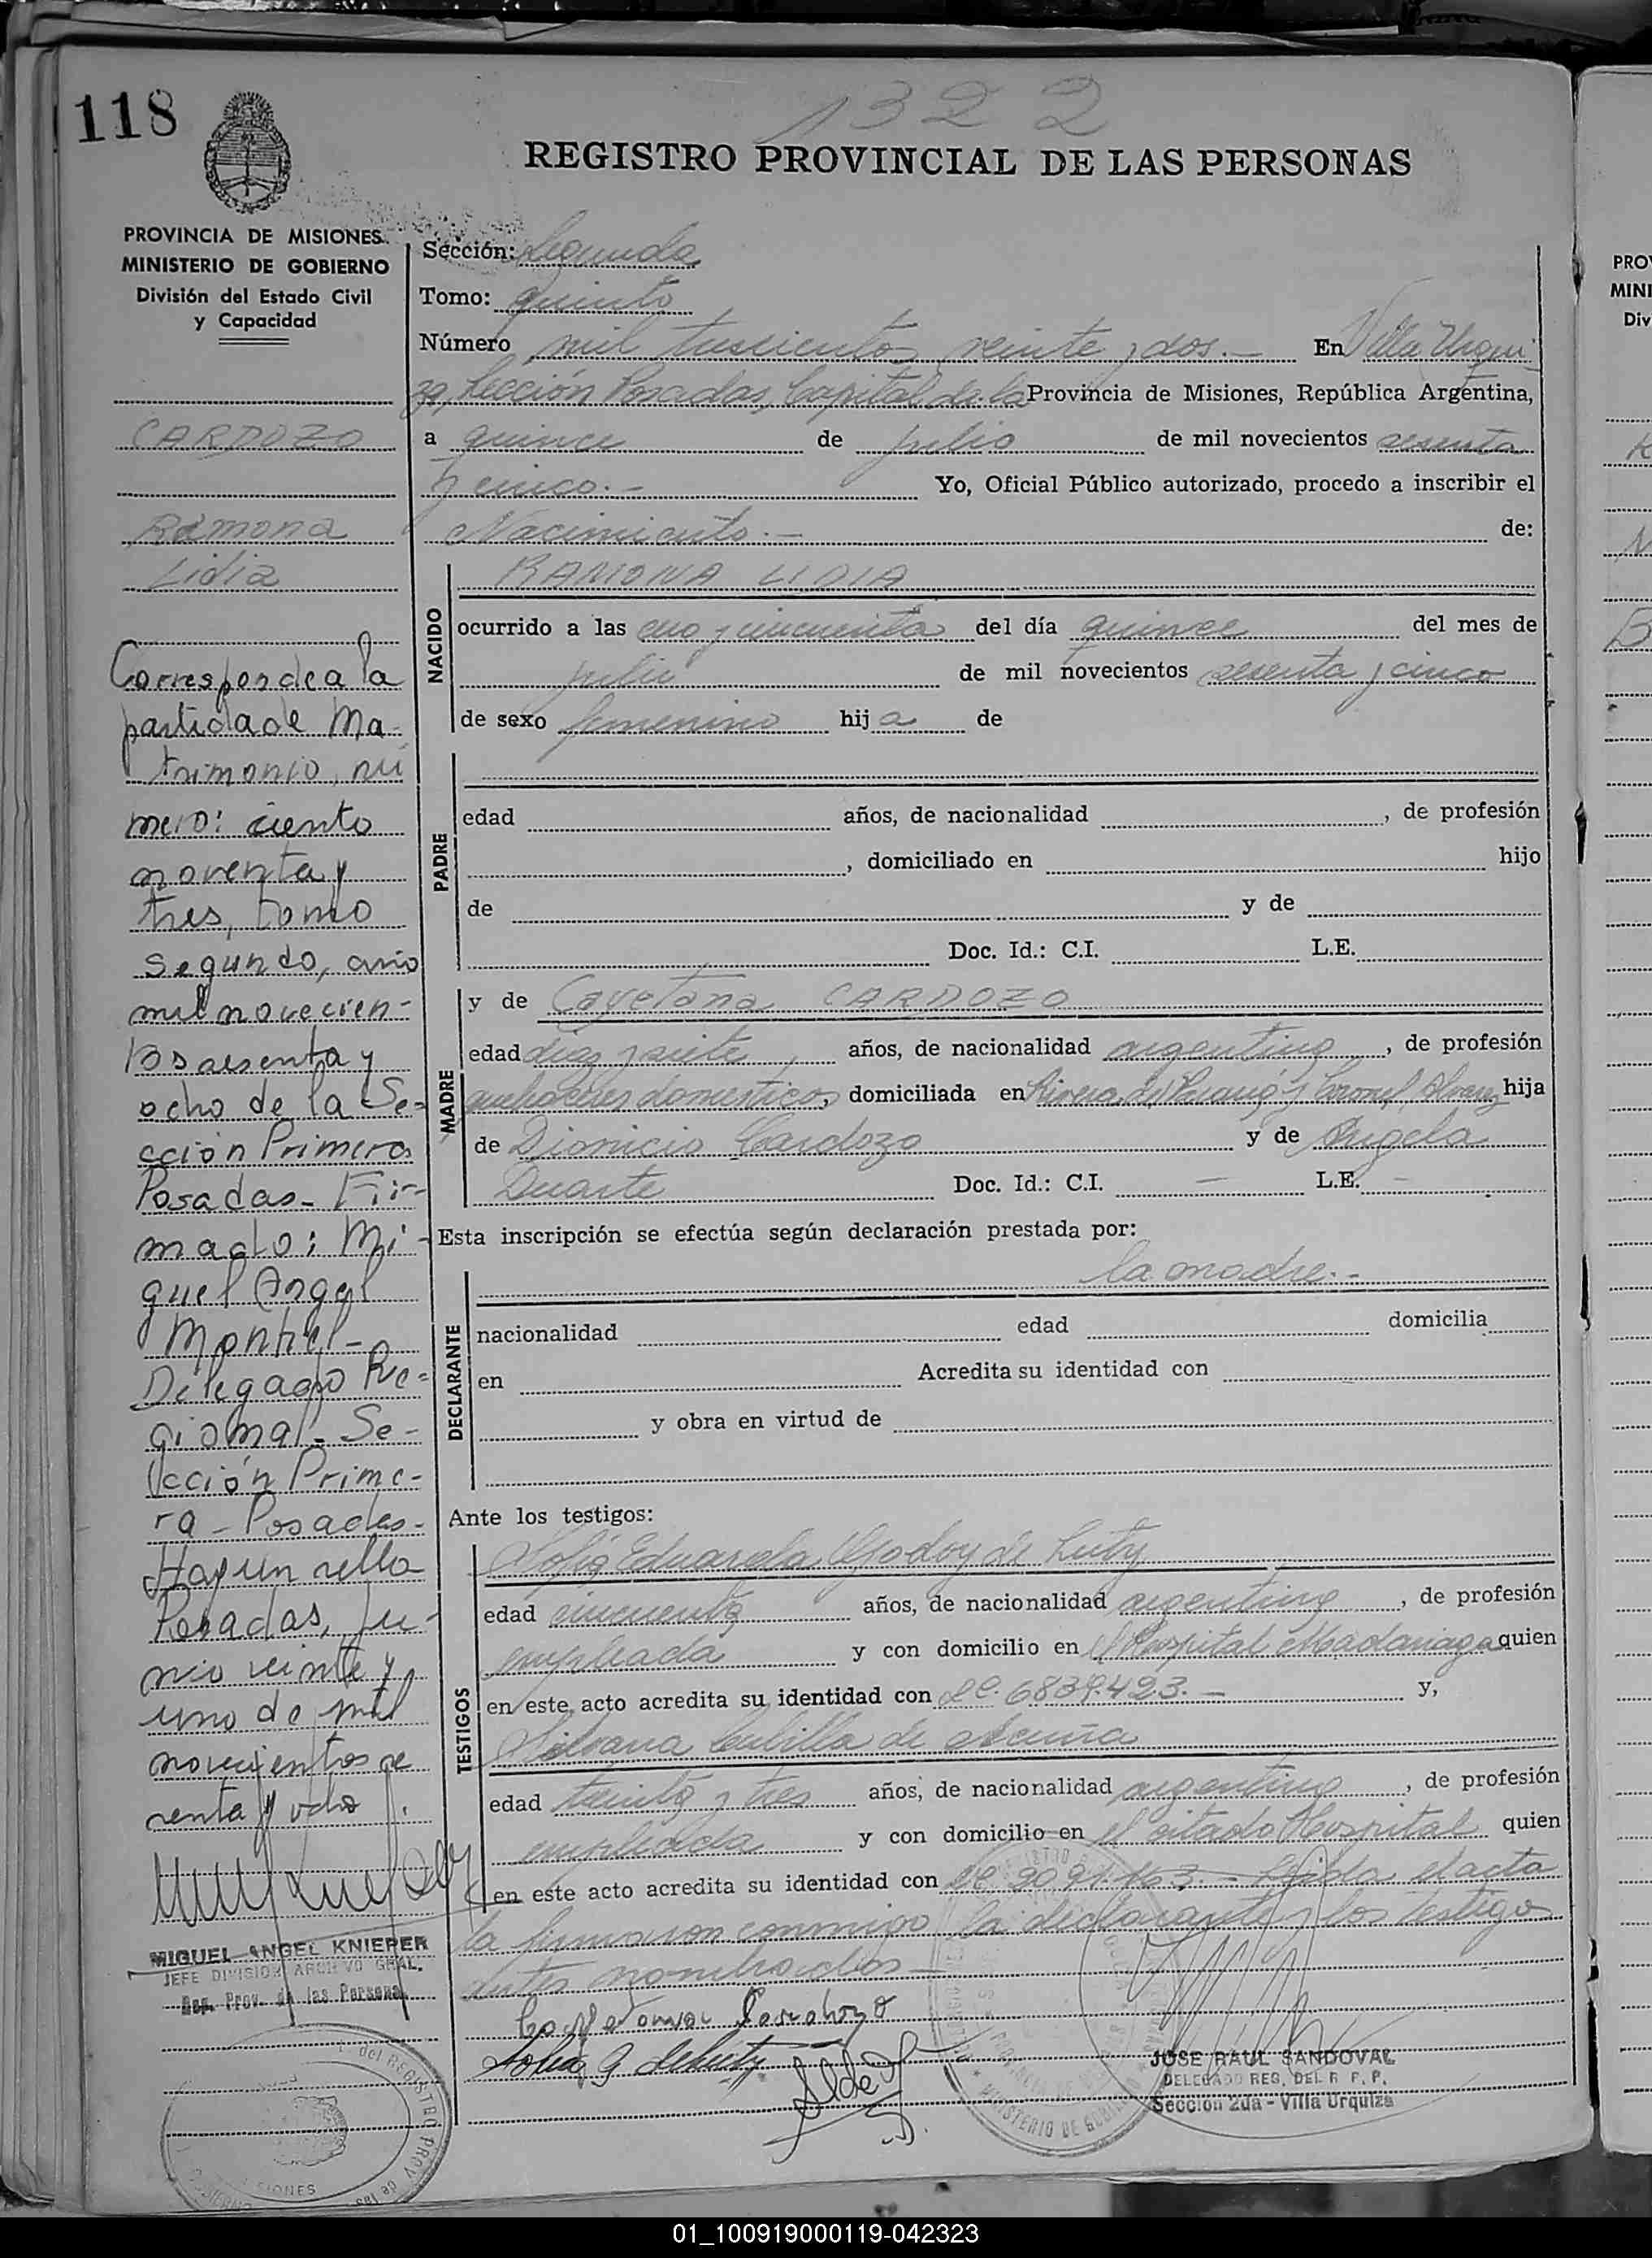 118
1322
REGISTRO PROVINCIAL DE LAS PERSONAS
PROVINCIA DE MISIONES
MINISTERIO DE GOBIERNO
División del Estado Civil
y Capacidad
CARDOZO
Ramona
Lidia
Corresponde a la
partida de Ma-
trimonio, nú
mero: ciento
noventa y
tres, tomo
segundo, año
mil novecien-
tos sesenta y
ocho de la Se-
cción Primera
Posadas - Fir-
mado: Mi-
guel Angel
Montiel -
Delegado Re-
gional - Se-
cción Prime-
ra - Posadas -
Hay un sello
Posadas, Ju-
nio veinte y
uno de mil
novecientos se
senta y ocho.
MIGUEL ANGEL KNIEPER
JEFE DIVISION ARCHIVO GRAL.
Reg. Prov. de las Personas
Sección: Segunda
Tomo: quinto
Número mil trescientos veinte y dos.- En Villa Urqui
za, Sección Posadas, Capital de la Provincia de Misiones, República Argentina,
a quince de julio de mil novecientos sesenta
y cinco.- Yo, Oficial Público autorizado, procedo a inscribir el
Nacimiento.- de:
NACIDO
RAMONA LIDIA
ocurrido a las uno y cincuenta del día quince del mes de
julio de mil novecientos sesenta y cinco
de sexo femenino hija de
PADRE
edad años, de nacionalidad , de profesión
, domiciliado en hijo
de y de
Doc. Id.: C.I. L.E.
MADRE
y de Cayetana CARDOZO
edad diez y siete años, de nacionalidad argentina, de profesión
quehaceres domésticos, domiciliada en Rivera del Paraná y Coronel Alvarez hija
de Dionicio Cardozo y de Angela
Duarte Doc. Id.: C.I. - L.E. -
Esta inscripción se efectúa según declaración prestada por:
DECLARANTE
la madre.-
nacionalidad edad domicilia
en Acredita su identidad con
y obra en virtud de
Ante los testigos:
TESTIGOS
Sofia Eduarda Godoy de
edad cincuenta años, de nacionalidad argentina, de profesión
empleada y con domicilio en el Hospital Madariaga quien
en este acto acredita su identidad con LC. 6839.423.- y,
Silvana Cubilla de Acuña
edad treinta y tres años, de nacionalidad argentina, de profesión
empleada y con domicilio en el citado Hospital quien
en este acto acredita su identidad con LC Leída el acta
la firmaron conmigo la declarante y los testigos
antes nombrados
JOSE RAUL SANDOVAL
DELEGADO REG. DEL R. P. P.
Sección 2da - Villa Urquiza
PRO
MINI
Div
01_100919000119-042323